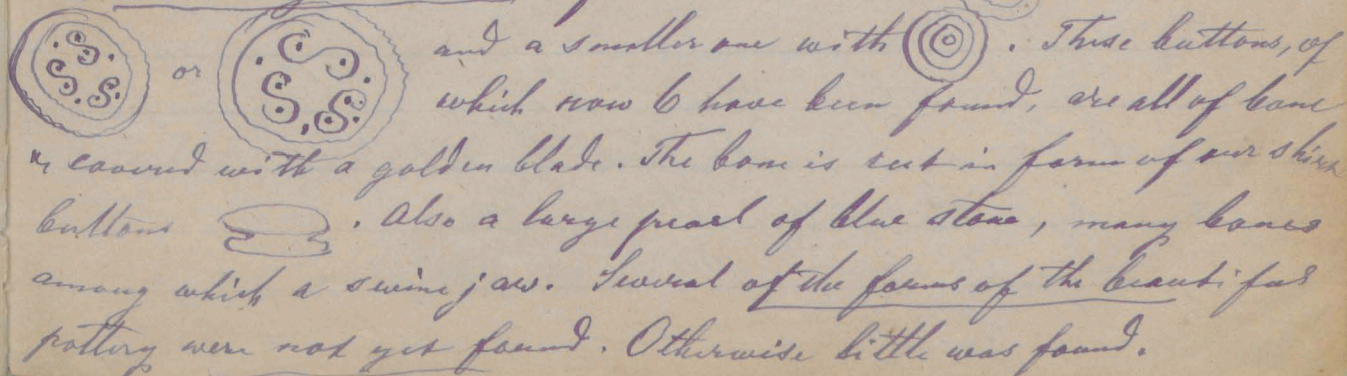 or and a smaller one with . These buttons, of
which now 6 have been found, are all of bone
covered with a golden blade. The bone is cut in form of our shirt
buttons . Also a large pearl of blue stone, many bones
among which a swine jaw. Several of the forms of the beautiful
pottery were not yet found. Otherwise little was found.